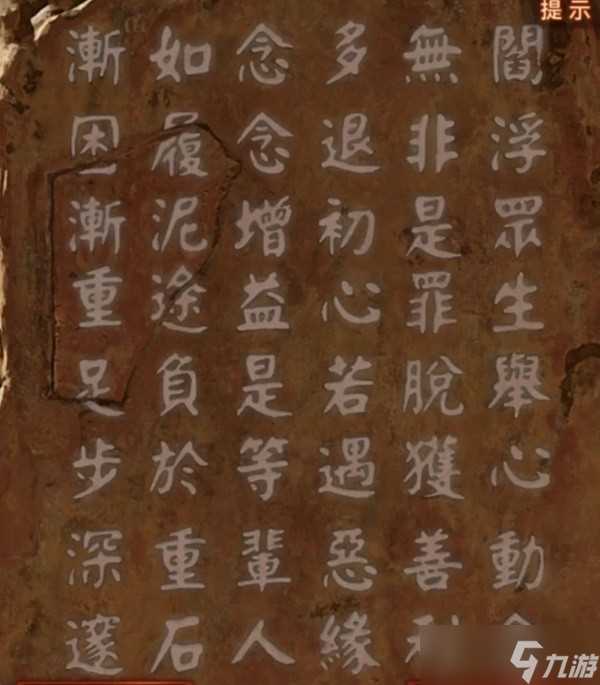 提示
閻浮眾生舉心動
無非是罪脫獲善
多退初心若遇惡緣
念念增益是等輩人
如履泥途負於重石
漸困漸重足步深邃
九游